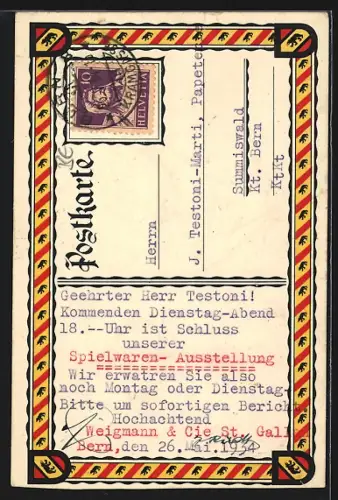 Postkarte.
10
HELVETIA
Herrn
J. Testoni-Marti, Papete
Summiswald
Kt. Bern
KtKt
Geehrter Herr Testoni!
Kommenden Dienstag-Abend
18.--Uhr ist Schluss
unserer
Spielwaren- Ausstellung
Wir erwatren Sie also
noch Montag oder Dienstag-
Bitte um sofortigen Bericht.
Hochachtend
Weigmann & Cie St. Gall
Bern, den 26. Mai 1934